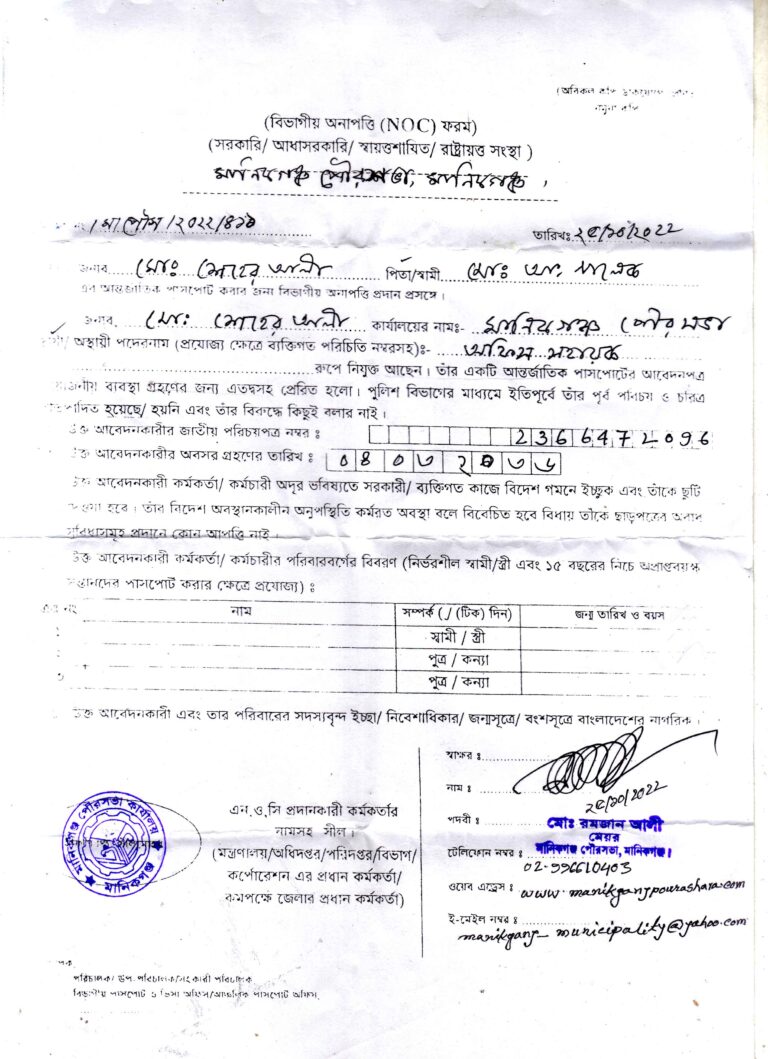 (বিভাগীয় অনাপত্তি (NOC) ফরম)
(সরকারি/ আধাসরকারি/ স্বায়ত্তশাযিত/ রাষ্ট্রায়ত্ত সংস্থা )
মানিকগঞ্জ পৌরসভা, মানিকগঞ্জ ।
তারিখঃ ২৫/১০/২০২২
জনাব মোঃ মোহের আলী পিতা/স্বামী মোঃ
এর আন্তর্জাতিক পাসপোর্ট করার জন্য বিভাগীয় অনাপত্তি প্রদান প্রসঙ্গে ।
জনাব. মোঃ মোহের আলী কার্যালয়ের নামঃ- মানিকগঞ্জ পৌরসভা
অস্থায়ী পদেরনাম (প্রযোজ্য ক্ষেত্রে ব্যক্তিগত পরিচিতি নম্বরসহ)ঃ- অফিস সহায়ক
রূপে নিযুক্ত আছেন। তাঁর একটি আন্তর্জাতিক পাসপোর্টের আবেদনপত্র
ব্যবস্থা গ্রহণের জন্য এতদ্বসহ প্রেরিত হলো। পুলিশ বিভাগের মাধ্যমে ইতিপূর্বে তাঁর পূর্ব পরিচয় ও চরিত্র
হয়েছে/ হয়নি এবং তাঁর বিরুদ্ধে কিছুই বলার নাই ।
উক্ত আবেদনকারীর জাতীয় পরিচয়পত্র নম্বর ঃ 2366472096
উক্ত আবেদনকারীর অবসর গ্রহণের তারিখ ঃ
উক্ত আবেদনকারী কর্মকর্তা/ কর্মচারী অদূর ভবিষ্যতে সরকারী/ ব্যক্তিগত কাজে বিদেশ গমনে ইচ্ছুক এবং তাঁকে ছুটি
হবে । তাঁর বিদেশ অবস্থানকালীন অনুপস্থিতি কর্মরত অবস্থা বলে বিবেচিত হবে বিধায় তাঁকে ছাড়পত্রের
প্রদানে কোন আপত্তি নাই ।
উক্ত আবেদনকারী কর্মকর্তা/ কর্মচারীর পরিবারবর্গের বিবরণ (নির্ভরশীল স্বামী/স্ত্রী এবং ১৫ বছরের নিচে অপ্রাপ্তবয়স্ক
সন্তানদের পাসপোর্ট করার ক্ষেত্রে প্রযোজ্য) ঃ
নাম সম্পর্ক (√ (টিক) দিন) জন্ম তারিখ ও বয়স
স্বামী / স্ত্রী
পুত্র / কন্যা
পুত্র / কন্যা
উক্ত আবেদনকারী এবং তার পরিবারের সদস্যবৃন্দ ইচ্ছা/ নিবেশাধিকার/ জন্মসূত্রে/ বংশসূত্রে বাংলাদেশের নাগরিক ।
স্বাক্ষর ঃ
নাম ঃ
২৫/১০/২০২২
পদবী ঃ মোঃ রমজান আলী
মেয়র
মানিকগঞ্জ পৌরসভা, মানিকগঞ্জ।
টেলিফোন নম্বর ঃ 02-996610403
ওয়েব এড্রেস ঃ www.manikganjpourashava.com
ই-মেইল নম্বর ঃ manikganj_municipality@yahoo.com
এন.ও.সি প্রদানকারী কর্মকর্তার
নামসহ সীল।
(মন্ত্রণালয়/অধিদপ্তর/পরিদপ্তর/বিভাগ/
কর্পোরেশন এর প্রধান কর্মকর্তা/
কমপক্ষে জেলার প্রধান কর্মকর্তা)
মানিকগঞ্জ পৌরসভা কার্যালয়
মানিকগঞ্জ
পরিচালক/ উপ-পরিচালক/সহকারী পরিচালক
বিভাগীয় পাসপোর্ট ও ভিসা অফিস/আঞ্চলিক পাসপোর্ট অফিস,